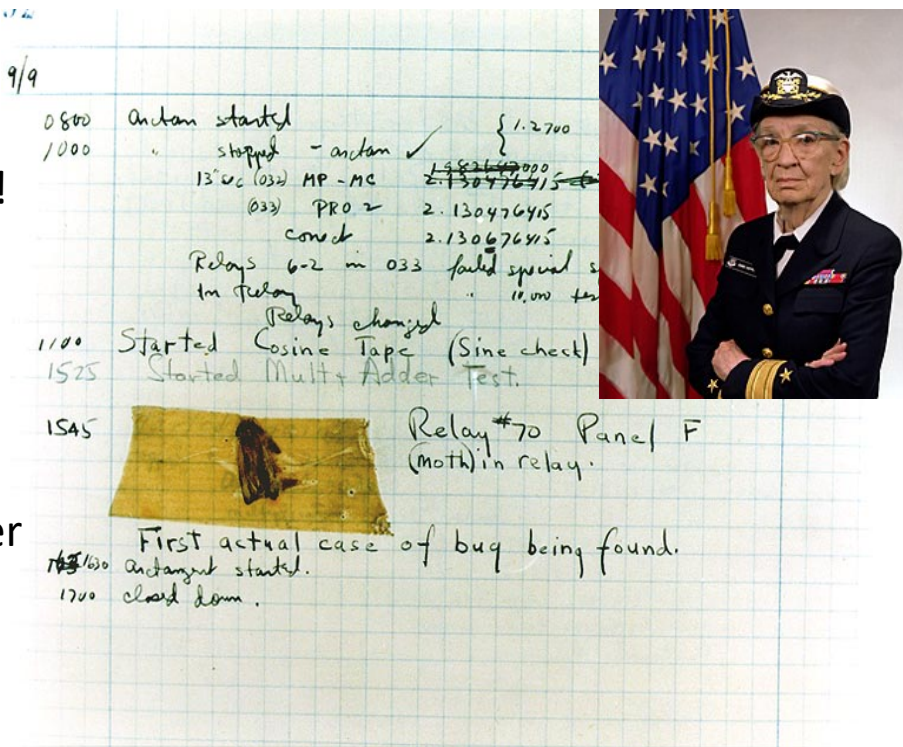 9/9
0800 antan started { 1.2700
1000 " stopped - antan ✓
13"uc (032) MP - MC 2.130476415
(033) PRO 2 2.130476415
conect 2.130676415
Relays 6-2 in 033 failed special s
In Relay " 10.000 tes
Relays changed
1100 Started Cosine Tape (Sine check)
1525 Started Mult + Adder Test.
1545 Relay #70 Panel F
(moth) in relay.
er
First actual case of bug being found.
1630 antangent started.
1700 closed down.
!